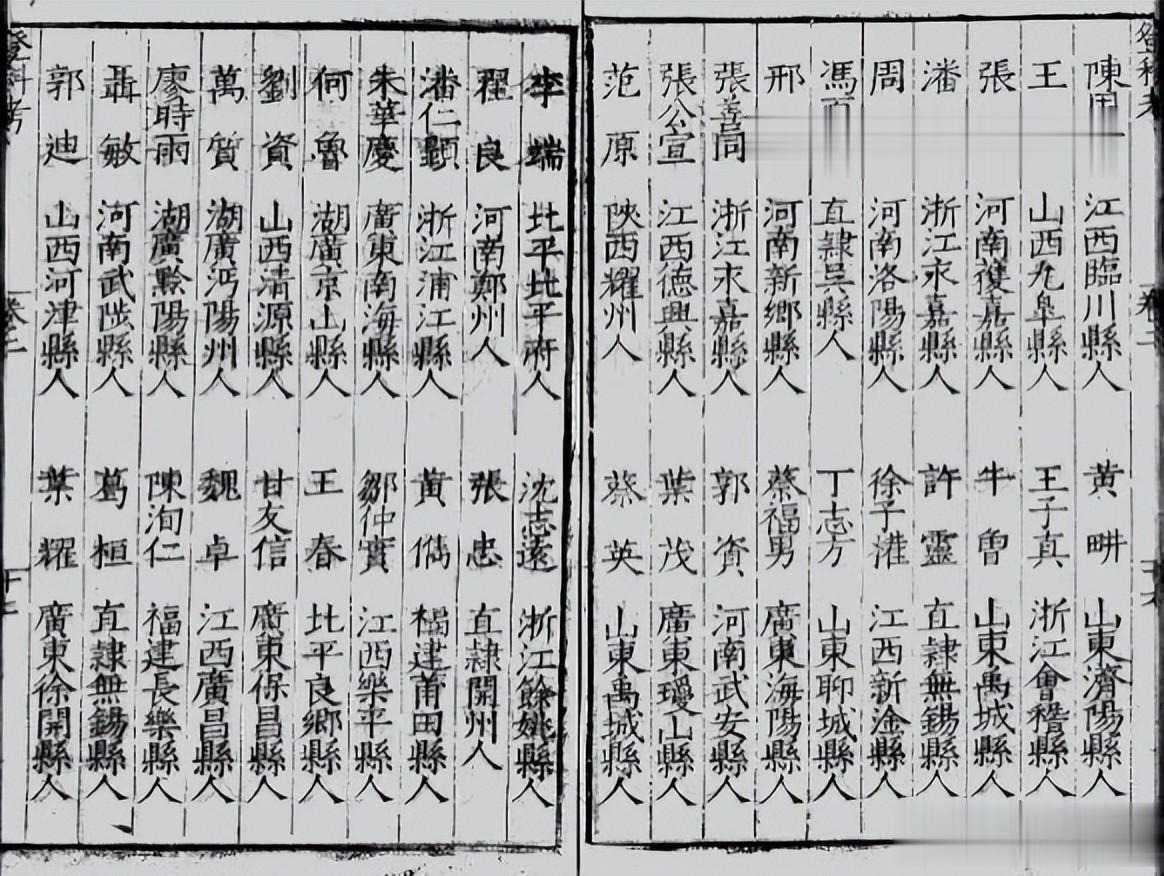 陳 江西臨川縣人 黃畊 山東濟陽縣人
王 山西九皋縣人 王子真 浙江會稽縣人
張 河南獲嘉縣人 牛魯 山東禹城縣人
潘 浙江永嘉縣人 許靈 直隸無錫縣人
周 河南洛陽縣人 徐子 江西新淦縣人
馮 直隸吳縣人 丁志方 山東聊城縣人
邢 河南新鄉縣人 蔡福男 廣東海陽縣人
張善同 浙江永嘉縣人 郭資 河南武安縣人
張公宣 江西德興縣人 葉茂 廣東瓊山縣人
范原 陝西耀州人 蔡英 山東禹城縣人
李端 北平北平府人 沈志遠 浙江餘姚縣人
翟良 河南鄭州人 張忠 直隸開州人
潘仁顕 浙江浦江縣人 黃儁 福建莆田縣人
朱華慶 廣東南海縣人 鄒仲實 江西樂平縣人
何魯 湖廣京山縣人 王春 北平良鄉縣人
劉資 山西清源縣人 甘友信 廣東保昌縣人
萬質 湖廣沔陽州人 魏卓 江西廣昌縣人
廖時雨 湖廣黔陽縣人 陳洵仁 福建長樂縣人
聶敏 河南武陟縣人 葛桓 直隸無錫縣人
郭迪 山西河津縣人 葉耀 廣東徐開縣人
登科考 卷二